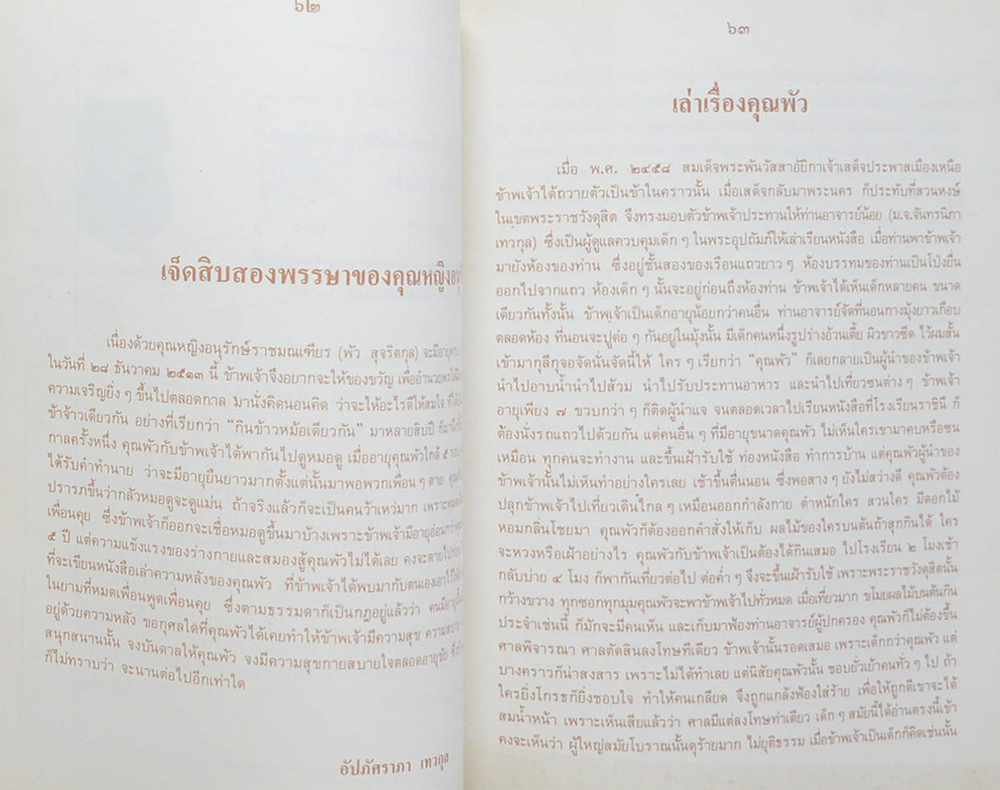 ๖๒
เจ็ดสิบสองพรรษาของคุณหญิงอนุ
เนื่องด้วยคุณหญิงอนุรักษ์ราชมณเฑียร (พัว สุจริตกุล) จะมีอายุ
ในวันที่ ๒๘ ธันวาคม ๒๕๑๓ นี้ ข้าพเจ้าจึงอยากจะให้ของขวัญ เพื่ออำนวยพร
ความเจริญยิ่ง ๆ ขึ้นไปตลอดกาล มานั่งคิดนอนคิด ว่าจะให้อะไรดีให้สมใจ
ข้าจ้าวเดียวกัน อย่างที่เรียกว่า "กินข้าวหม้อเดียวกัน" มาหลายสิบปี
กาลครั้งหนึ่ง คุณพัวกับข้าพเจ้าได้พากันไปดูหมอดู เมื่ออายุคุณพัวใกล้ ๕ รอบ
ได้รับคำทำนาย ว่าจะมีอายุยืนยาวมากตั้งแต่นั้นมาพอพวกเพื่อน ๆ ตาย
ปรารภขึ้นว่ากลัวหมอดูจะดูแม่น ถ้าจริงแล้วก็จะเป็นคนว้าเหว่มาก เพราะ
เพื่อนคุย ซึ่งข้าพเจ้าก็ออกจะเชื่อหมอดูขึ้นมาบ้างเพราะข้าพเจ้ามีอายุอ่อนกว่า
๕ ปี แต่ความแข็งแรงของร่างกายและสมองสู้คุณพัวไม่ได้เลย คงจะตายไป
ที่จะเขียนหนังสือเล่าความหลังของคุณพัว ที่ข้าพเจ้าได้พบมากับตนเองเอาไว้
ในยามที่หมดเพื่อนพูดเพื่อนคุย ซึ่งตามธรรมดาก็เป็นกฎอยู่แล้วว่า คนมีอายุ
อยู่ด้วยความหลัง ขอกุศลใดที่คุณพัวได้เคยทำให้ข้าพเจ้ามีความสุข ความสบาย
สนุกสนานนั้น จงบันดาลให้คุณพัว จงมีความสุขกายสบายใจตลอดอายุขัย
ก็ไม่ทราบว่า จะนานต่อไปอีกเท่าใด
อัปภัศราภา เทวกุล
๖๓
เล่าเรื่องคุณพัว
เมื่อ พ.ศ. ๒๔๕๘ สมเด็จพระพันวัสสาอัยิกาเจ้าเสด็จประพาสเมืองเหนือ
ข้าพเจ้าได้ถวายตัวเป็นข้าในคราวนั้น เมื่อเสด็จกลับมาพระนคร ก็ประทับที่สวนหงษ์
ในเขตพระราชวังดุสิต จึงทรงมอบตัวข้าพเจ้าประทานให้ท่านอาจารย์น้อย (ม.จ.จันทรนิภา
เทวกุล) ซึ่งเป็นผู้ดูแลควบคุมเด็ก ๆ ในพระอุปถัมภ์ให้เล่าเรียนหนังสือ เมื่อท่านพาข้าพเจ้า
มายังห้องของท่าน ซึ่งอยู่ชั้นสองของเรือนแถวยาว ๆ ห้องบรรทมของท่านเป็นโป่งยื่น
ออกไปจากแถว ห้องเด็ก ๆ นั้นจะอยู่ก่อนถึงห้องท่าน ข้าพเจ้าได้เห็นเด็กหลายคน ขนาด
เดียวกันทั้งนั้น ข้าพเจ้าเป็นเด็กอายุน้อยกว่าคนอื่น ท่านอาจารย์จัดที่นอนกางมุ้งยาวเกือบ
ตลอดห้อง ที่นอนจะปูต่อ ๆ กันอยู่ในมุ้งนั้น มีเด็กคนหนึ่งรูปร่างอ้วนเตี้ย ผิวขาวซีด ไว้ผมสั้น
เข้ามากุลีกุจอจัดนั่นจัดนี่ให้ ใคร ๆ เรียกว่า "คุณพัว" ก็เลยกลายเป็นผู้นำของข้าพเจ้า
นำไปอาบน้ำนำไปส้วม นำไปรับประทานอาหาร และนำไปเที่ยวซนต่าง ๆ ข้าพเจ้า
อายุเพียง ๗ ขวบกว่า ๆ ก็ติดผู้นำแจ จนตลอดเวลาไปเรียนหนังสือที่โรงเรียนราชินี ก็
ต้องนั่งรถแถวไปด้วยกัน แต่คนอื่น ๆ ที่มีอายุขนาดคุณพัว ไม่เห็นใครเขามาคบหรือซน
เหมือน ทุกคนจะทำงาน และขึ้นเฝ้ารับใช้ ท่องหนังสือ ทำการบ้าน แต่คุณพัวผู้นำของ
ข้าพเจ้านั้นไม่เห็นทำอย่างใครเลย เช้าขึ้นตื่นนอน ซึ่งพอสาง ๆ ยังไม่สว่างดี คุณพัวต้อง
ปลุกข้าพเจ้าไปเที่ยวเดินไกล ๆ เหมือนออกกำลังกาย ตำหนักใคร สวนใคร มีดอกไม้
หอมกลิ่นโชยมา คุณพัวก็ต้องออกคำสั่งให้เก็บ ผลไม้ของใครบนต้นถ้าสุกกินได้ ใคร
จะหวงหรือเฝ้าอย่างไร คุณพัวกับข้าพเจ้าเป็นต้องได้กินเสมอ ไปโรงเรียน ๒ โมงเช้า
กลับบ่าย ๔ โมง ก็พากันเที่ยวต่อไป ต่อค่ำ ๆ จึงจะขึ้นเฝ้ารับใช้ เพราะพระราชวังดุสิตนั้น
กว้างขวาง ทุกซอกทุกมุมคุณพัวจะพาข้าพเจ้าไปทั่วหมด เมื่อเที่ยวมาก ขโมยผลไม้บนต้นกิน
ประจำเช่นนี้ ก็มักจะมีคนเห็น และเก็บมาฟ้องท่านอาจารย์ผู้ปกครอง คุณพัวก็ไม่ต้องขึ้น
ศาลพิจารณา ศาลตัดสินลงโทษทีเดียว ข้าพเจ้านั้นรอดเสมอ เพราะเด็กกว่าคุณพัว แต่
บางคราวก็น่าสงสาร เพราะไม่ได้ทำเลย แต่นิสัยคุณพัวนั้น ชอบยั่วเย้าคนทั่ว ๆ ไป ถ้า
ใครยิ่งโกรธก็ยิ่งชอบใจ ทำให้คนเกลียด จึงถูกแกล้งฟ้องใส่ร้าย เพื่อให้ถูกตีเขาจะได้
สมน้ำหน้า เพราะเห็นเสียแล้วว่า ศาลมีแต่ลงโทษท่าเดียว เด็ก ๆ สมัยนี้ได้อ่านตรงนี้เข้า
คงจะเห็นว่า ผู้ใหญ่สมัยโบราณนั้นดุร้ายมาก ไม่ยุติธรรม เมื่อข้าพเจ้าเป็นเด็กก็คิดเช่นนั้น